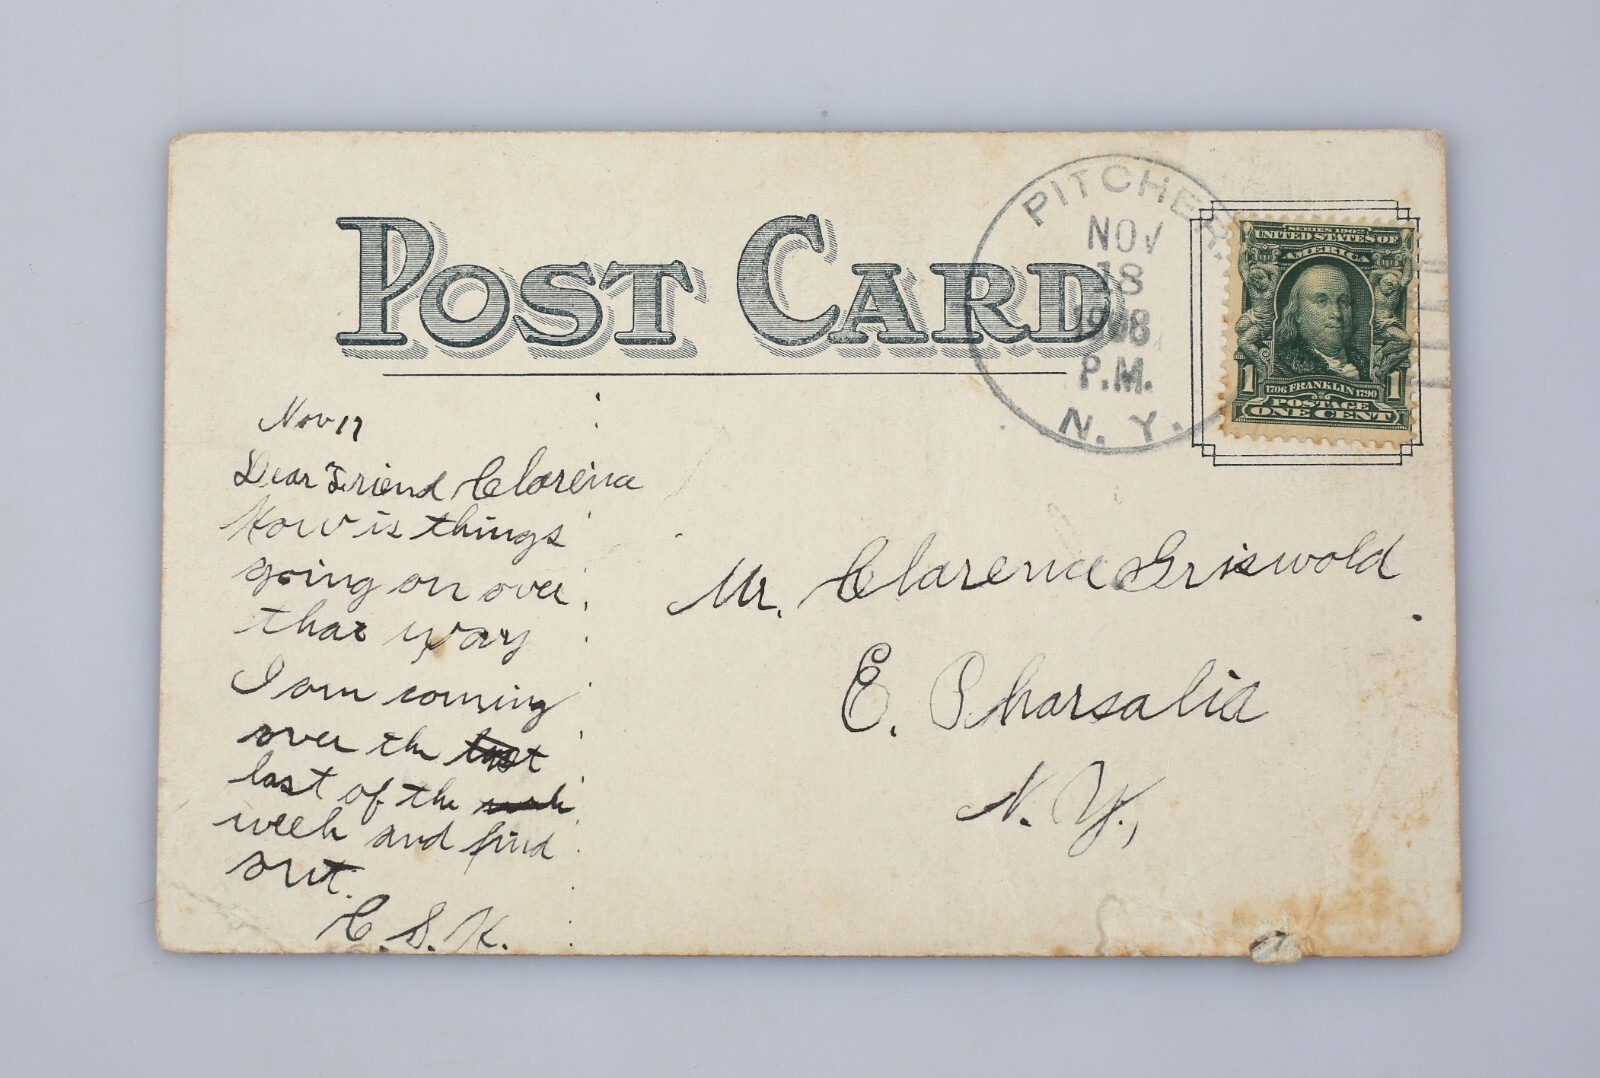 POST CARD
PITCHER.
NOV
18
1908
P.M.
N. Y.
SERIES 1902
UNITED STATES OF
AMERICA
1 1
1706 FRANKLIN 1790
POSTAGE
ONE CENT
Nov 17
Dear Friend Clarence
How is things
going on over
that way
I am coming
over the last
last of the
week and find
out.
C. S. K.
Mr. Clarence Griswold
E. Pharsalia
N. Y.,